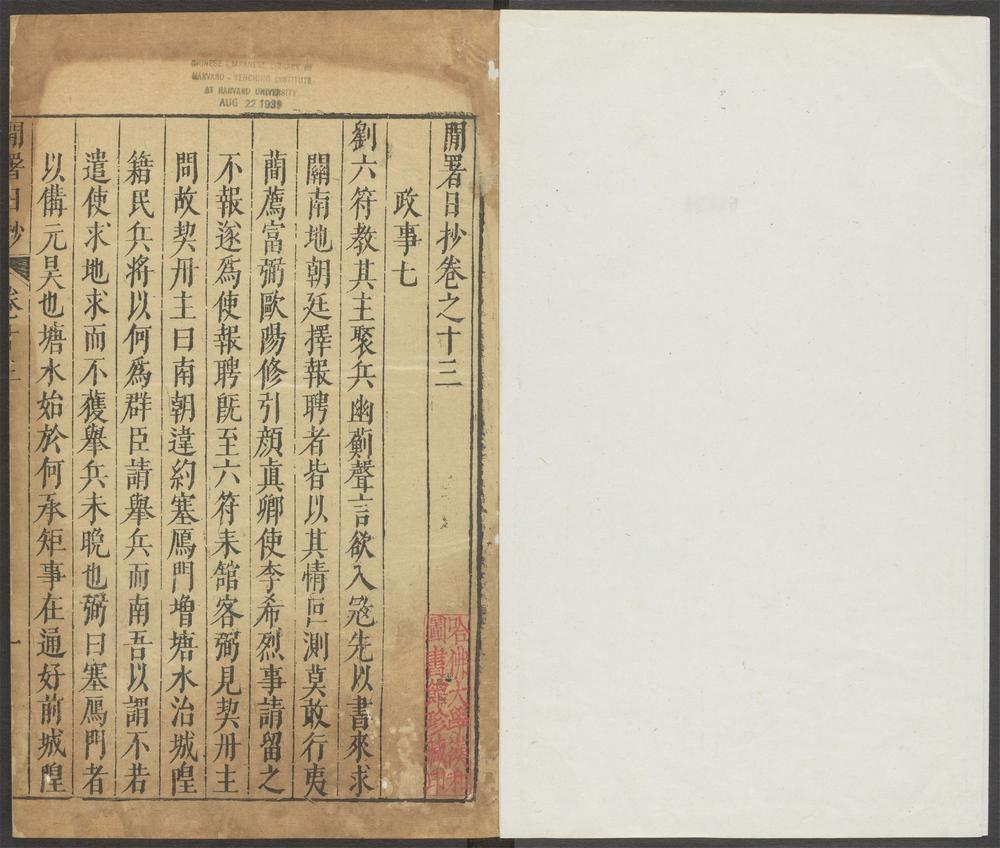 閒署日抄卷之十三
政事七
劉六符教其主聚兵幽薊聲言欲入寇先以書來求
關南地朝廷擇報聘者皆以其情叵測莫敢行夷
簡薦富弼歐陽修引顏真卿使李希烈事請留之
不報遂爲使報聘既至六符來舘客弼見契丹主
問故契丹主曰南朝違約塞鴈門增塘水治城隍
籍民兵將以何爲群臣請舉兵而南吾以謂不若
遣使求地求而不獲舉兵未晩也弼曰塞鴈門者
以備元昊也塘水始於何承矩事在通好前城隍
閒署日抄
卷十三
一
CHINESE - JAPANESE LIBRARY OF
HARVARD - YENCHING INSTITUTE
AT HARVARD UNIVERSITY
AUG 22 1939
哈佛大學漢和
圖書館珍藏印